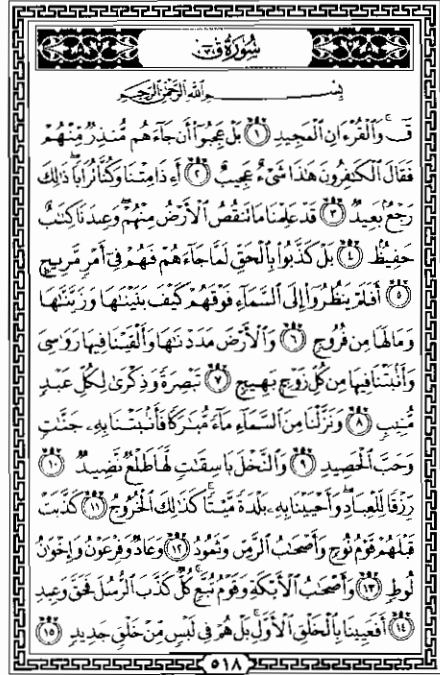 سُورَةُ قٓ
بِسْمِ ٱللَّهِ ٱلرَّحْمَٰنِ ٱلرَّحِيمِ
قٓۚ وَٱلْقُرْءَانِ ٱلْمَجِيدِ ١ بَلْ عَجِبُوٓا۟ أَن جَآءَهُم مُّنذِرٌ مِّنْهُمْ
فَقَالَ ٱلْكَٰفِرُونَ هَٰذَا شَىْءٌ عَجِيبٌ ٢ أَءِذَا مِتْنَا وَكُنَّا تُرَابًا ۖ ذَٰلِكَ
رَجْعٌۢ بَعِيدٌ ٣ قَدْ عَلِمْنَا مَا تَنقُصُ ٱلْأَرْضُ مِنْهُمْ ۖ وَعِندَنَا كِتَٰبٌ
حَفِيظٌۢ ٤ بَلْ كَذَّبُوا۟ بِٱلْحَقِّ لَمَّا جَآءَهُمْ فَهُمْ فِىٓ أَمْرٍ مَّرِيجٍ
٥ أَفَلَمْ يَنظُرُوٓا۟ إِلَى ٱلسَّمَآءِ فَوْقَهُمْ كَيْفَ بَنَيْنَٰهَا وَزَيَّنَّٰهَا
وَمَا لَهَا مِن فُرُوجٍ ٦ وَٱلْأَرْضَ مَدَدْنَٰهَا وَأَلْقَيْنَا فِيهَا رَوَٰسِىَ
وَأَنۢبَتْنَا فِيهَا مِن كُلِّ زَوْجٍۭ بَهِيجٍ ٧ تَبْصِرَةً وَذِكْرَىٰ لِكُلِّ عَبْدٍ
مُّنِيبٍ ٨ وَنَزَّلْنَا مِنَ ٱلسَّمَآءِ مَآءً مُّبَٰرَكًا فَأَنۢبَتْنَا بِهِۦ جَنَّٰتٍ
وَحَبَّ ٱلْحَصِيدِ ٩ وَٱلنَّخْلَ بَاسِقَٰتٍ لَّهَا طَلْعٌ نَّضِيدٌ ١٠
رِّزْقًا لِّلْعِبَادِ ۖ وَأَحْيَيْنَا بِهِۦ بَلْدَةً مَّيْتًا ۚ كَذَٰلِكَ ٱلْخُرُوجُ ١١ كَذَّبَتْ
قَبْلَهُمْ قَوْمُ نُوحٍ وَأَصْحَٰبُ ٱلرَّسِّ وَثَمُودُ ١٢ وَعَادٌ وَفِرْعَوْنُ وَإِخْوَٰنُ
لُوطٍ ١٣ وَأَصْحَٰبُ ٱلْأَيْكَةِ وَقَوْمُ تُبَّعٍ ۚ كُلٌّ كَذَّبَ ٱلرُّسُلَ فَحَقَّ وَعِيدِ
١٤ أَفَعَيِينَا بِٱلْخَلْقِ ٱلْأَوَّلِ ۚ بَلْ هُمْ فِى لَبْسٍ مِّنْ خَلْقٍ جَدِيدٍ ١٥
٥١٨